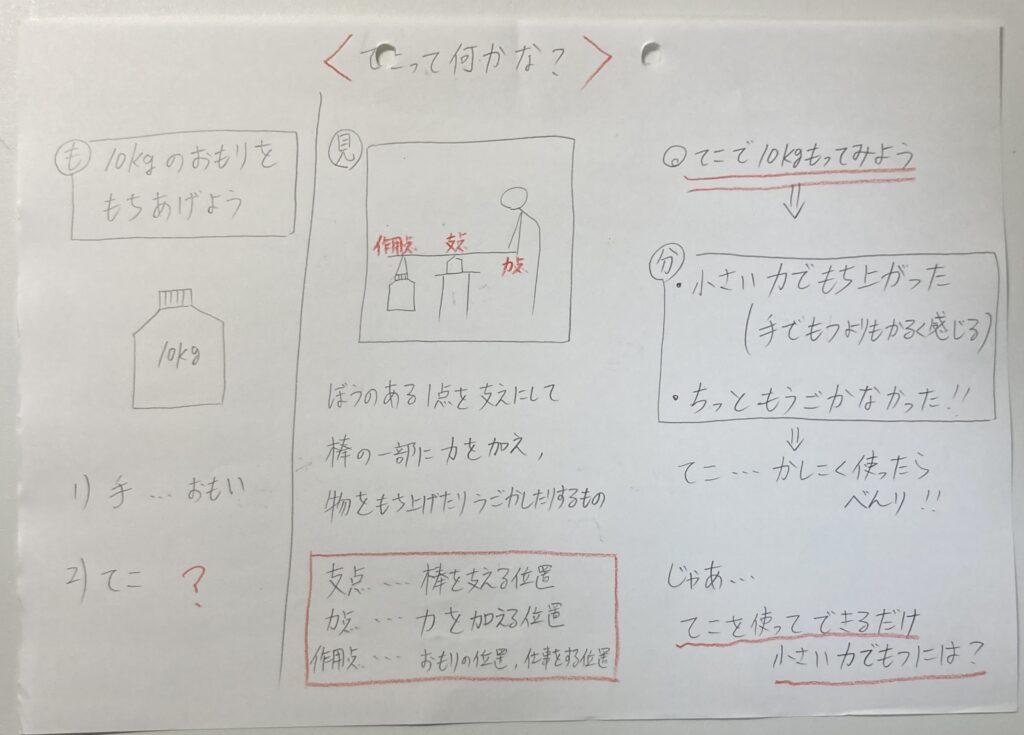 〈てこって何かな？〉
も
10kgのおもりを
もちあげよう
10kg
1) 手 … おもい
2) てこ ？
見
作用点
支点
力点
ぼうのある1点を支えにして
棒の一部に力を加え，
物をもち上げたりうごかしたりするもの
支点 … 棒を支える位置
力点 … 力を加える位置
作用点 … おもりの位置，仕事をする位置
てこで10kgもってみよう
⇓
分
・小さい力でもち上がった
(手でもつよりもかるく感じる)
・ちっともうごかなかった!!
⇓
てこ … かしこく使ったら
べんり!!
じゃあ…
てこを使ってできるだけ
小さい力でもつには？